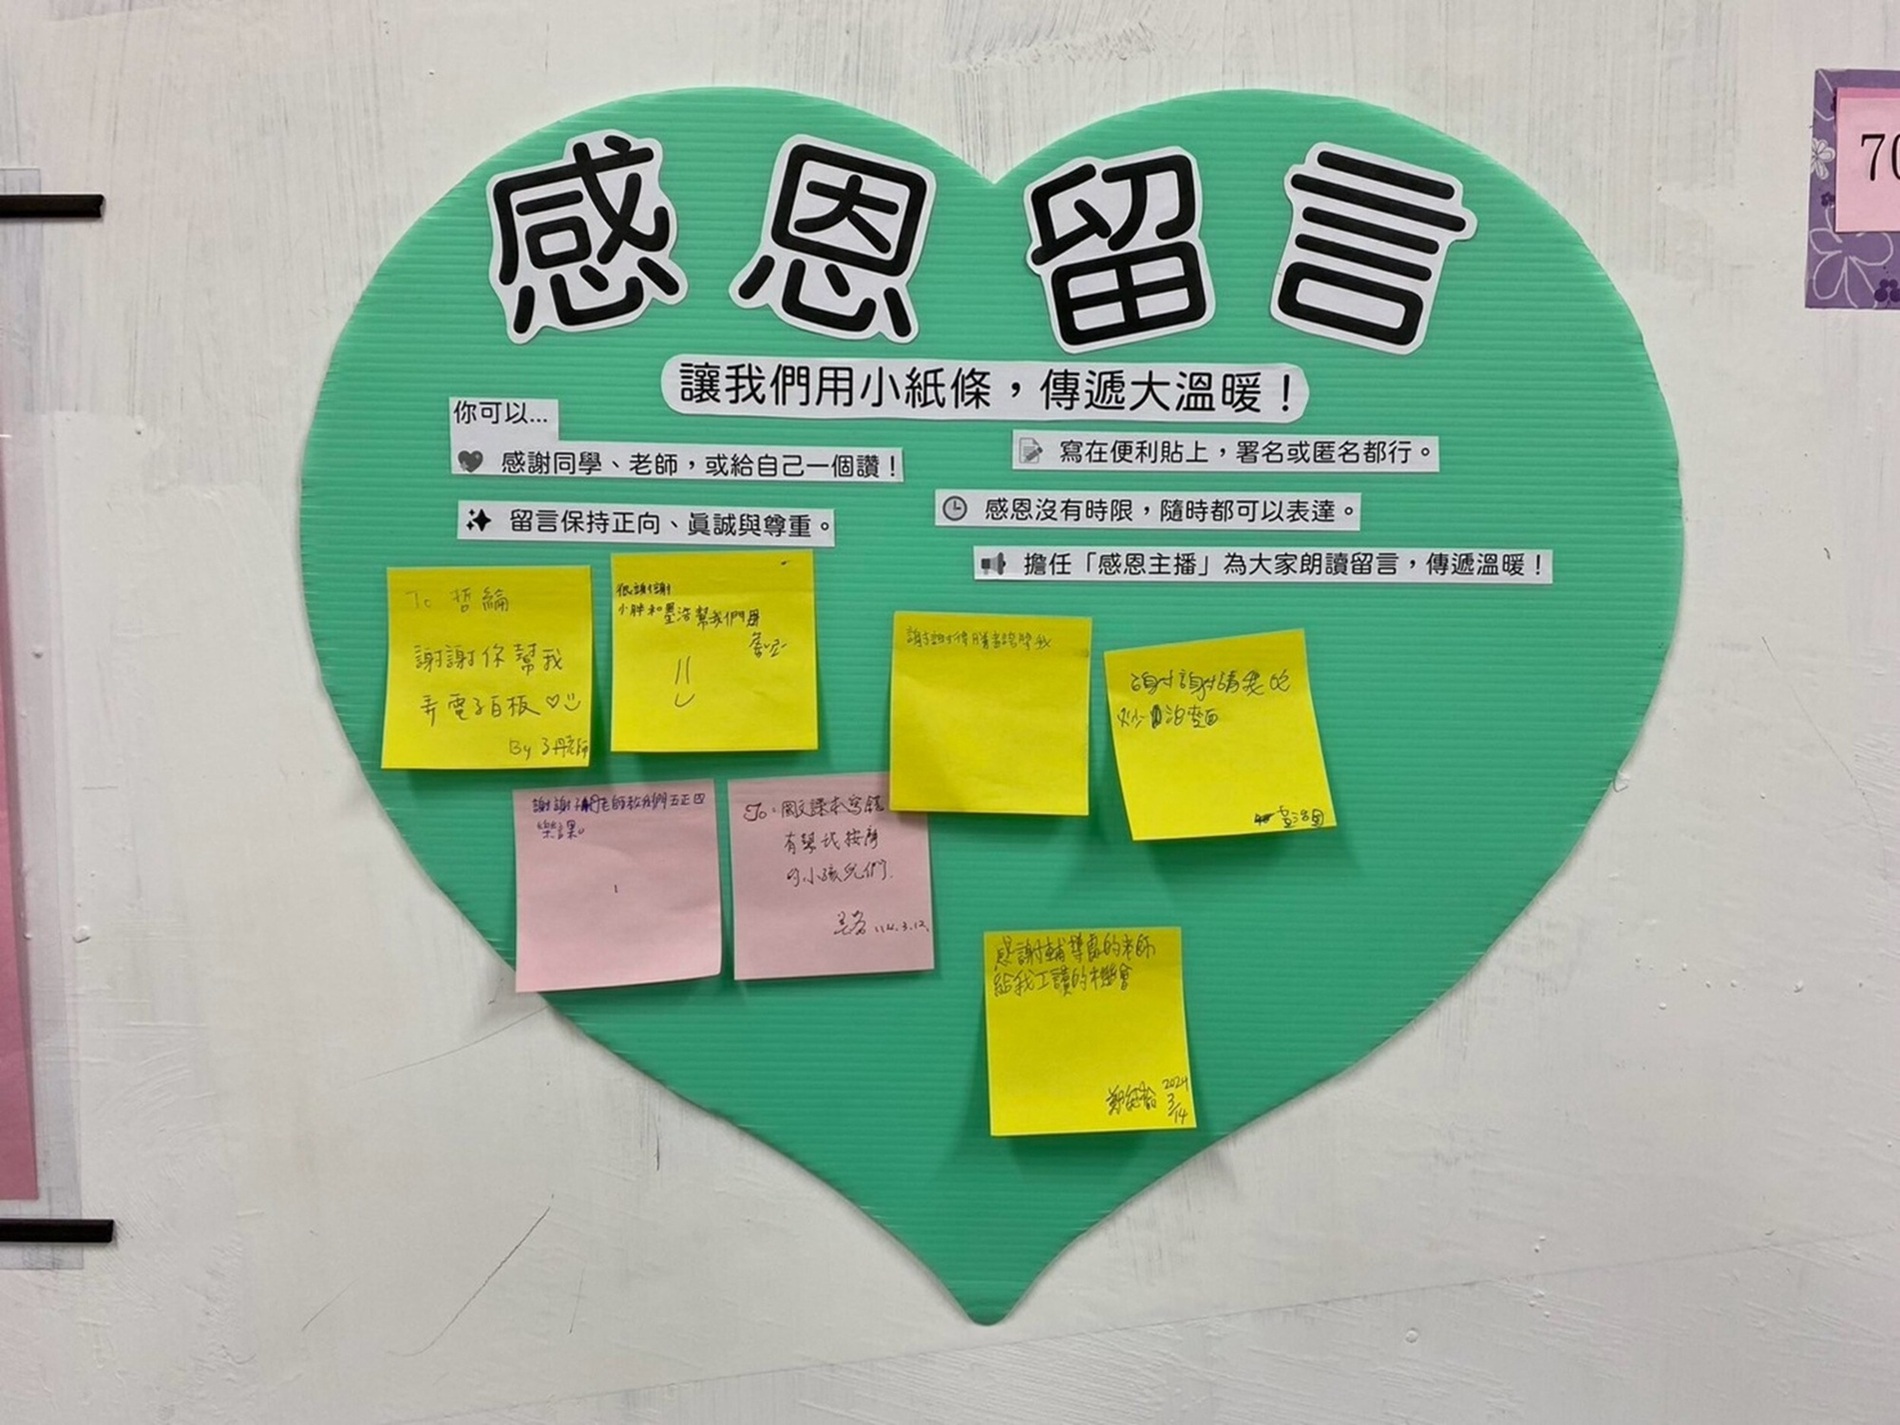 感恩留言
讓我們用小紙條，傳遞大溫暖！
你可以...
感謝同學、老師，或給自己一個讚！
留言保持正向、真誠與尊重。
寫在便利貼上，署名或匿名都行。
感恩沒有時限，隨時都可以表達。
擔任「感恩主播」為大家朗讀留言，傳遞溫暖！
To 哲綸
謝謝你幫我
弄電子白板♡
By 子丹老師
很謝謝
小胖和墨浩幫我們用
謝謝
謝謝請我吃
炒泡麵
謝謝 老師教我們五正四
樂課。
To：國文課本寫錯
有幫我按摩
的小孩兒們.
114.3.12.
感謝輔導處的老師
給我工讀的機會
2024
3/14
70